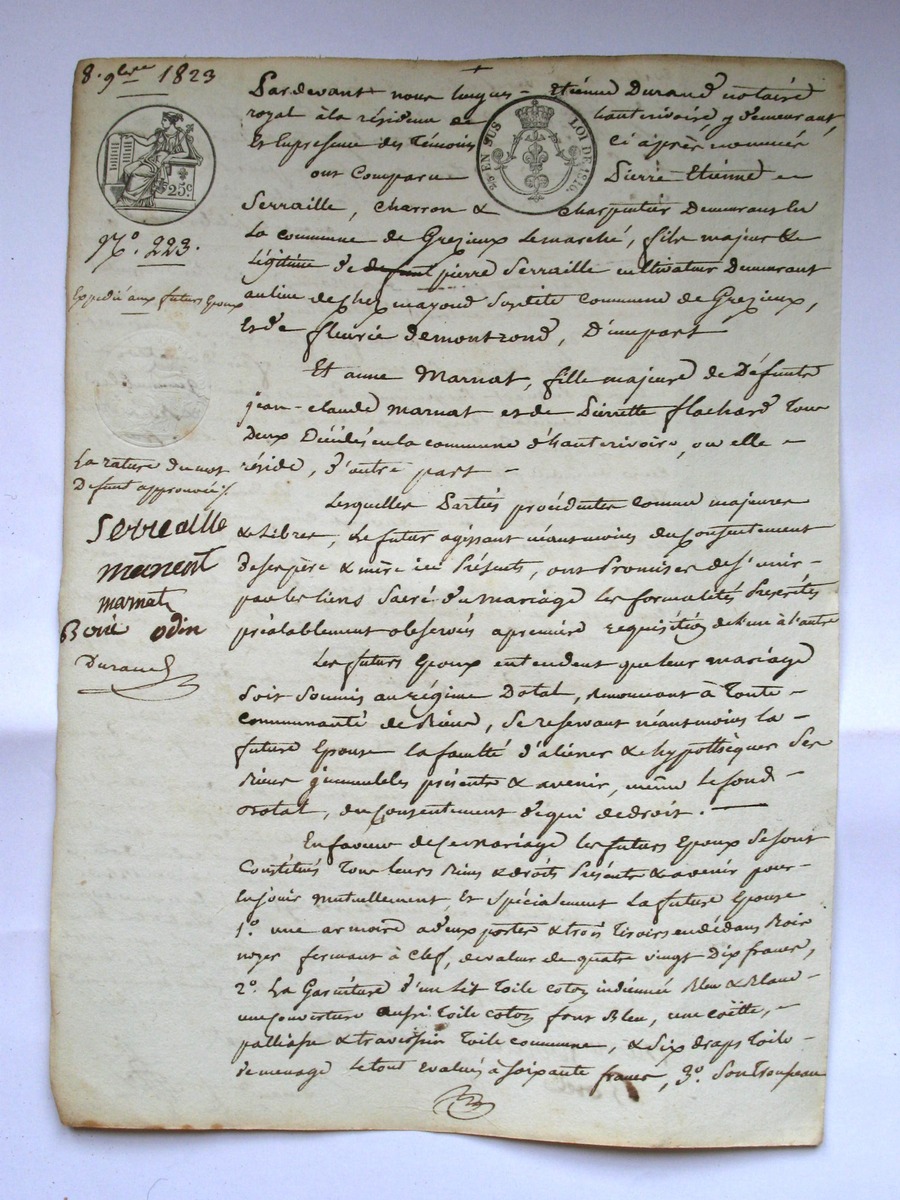 8. 9bre 1823
25 c.
25 EN SUS LOI DE 1816.
N.o 223.
Expedié aux futurs Epoux
La rature du mot
Defunt approuvée ./.
Serraille
marnat
Odin
Durand
Pardevant nous Etiénne Durand notaire
royal à la résidence de hauterivoire y demeurant,
Et En presence des Témoins Ci après nommés
ont Comparu Pierre Etiénne
Serraille, Charron & Charpentier Demeurant En
La commune de Grezieux Lemarché, fils majeur &
Légitime de defunt pierre Serraille cultivateur Demeurant
au lieu de Chez mayoud Susdite Commune de Grezieux,
Et de fleurie Demontrond, D'une part
Et anne Marnat, fille majeure de Défunts
jean-Claude Marnat et de Pierrette flachard Tous
Deux Décédés en la commune d'hauterivoire, ou elle
réside, d'autre part -
Lesquelles Parties procédantes comme majeures
& Libres, Le futur agissant néanmoins du Consentement
de ses père & mère ici Présents, ont Promis de s'unir
par les liens Sacré du Mariage Les formalités Prescrites
préalablement observées a premiere requisition de l'une à l'autre
Les futurs Epoux entendent que leur mariage
Soit Soumis au régime Dotal, renoncant à Toute
Communauté de Biens, Se reservant néantmoins la
future Epouse la faculté d'aliéner & hypothéquer Ses
Biens immeubles présents & avenir, même Le fond
Dotal, du Consentement de qui de droit.
En faveur de Ce Mariage les futurs Epoux Se sont
Constitués Tous leurs Biens & droits Présents & avenir pour
En jouir Mutuellement, Et Spécialement La future Epouse
1.o une armoire a deux portes & trois Tiroirs en dedans Bois
noyer fermant à Clef, de valeur de quatre vingt Dix francs,
2.o La Garniture d'un Lit Toile Coton indienne Bleu & Blanc
une couverture aussi Toile Coton fond Bleu, une Coëtte,
palliasse & traversin Toile commune, & Six draps Toile
de menage Le tout évalué à Soixante francs, 3.o Son Trousseau